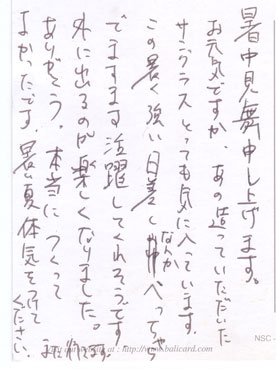 暑中見舞申し上げます。
お元気ですか。あの造っていただいた
サングラスとっても気に入っています。
この暑く強い日差し
なんかへっちゃら
でますます活躍してくれそうです
外に出るのが楽しくなりました。
ありがとう。本当につくって
よかったです。暑い夏体気をつけて
ください。
http://www.balicard.com
NSC -